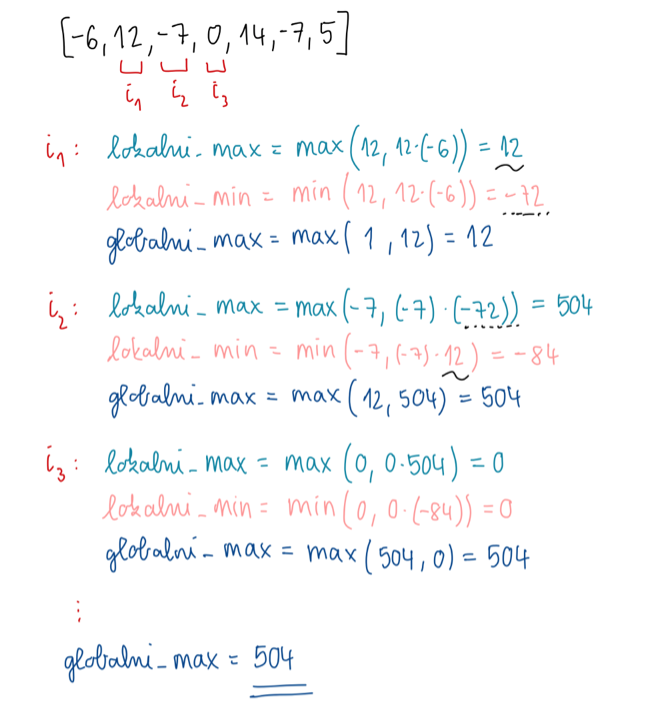 [-6, 12, -7, 0, 14, -7, 5]
i₁ i₂ i₃
i₁: lokalni_max = max(12, 12·(-6)) = 12
lokalni_min = min(12, 12·(-6)) = -72
globalni_max = max(1, 12) = 12
i₂: lokalni_max = max(-7, (-7)·(-72)) = 504
lokalni_min = min(-7, (-7)·12) = -84
globalni_max = max(12, 504) = 504
i₃: lokalni_max = max(0, 0·504) = 0
lokalni_min = min(0, 0·(-84)) = 0
globalni_max = max(504, 0) = 504
⋮
globalni_max = 504